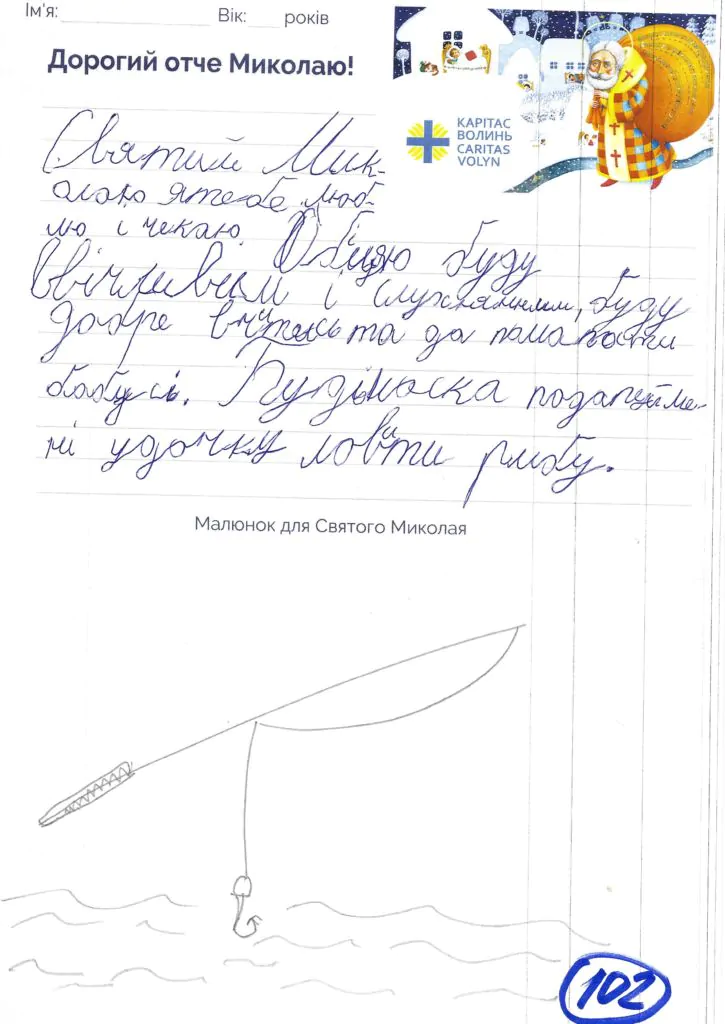 Ім'я: Вік: років
Дорогий отче Миколаю!
КАРІТАС
ВОЛИНЬ
CARITAS
VOLYN
Святий Мик-
олаю я тебе люб-
лю і чекаю. Обіцяю буду
ввічливим і слухняним, буду
добре вчитись та да помагати
бабусі. Буділаска подаруй ме-
ні удочку ловити рибу.
Малюнок для Святого Миколая
102